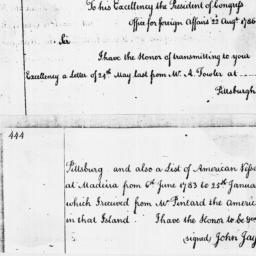 To his Excellency the President of Congress
Office for foreign Affairs 22 Augt 1786
Sir
I have the Honor of transmitting to your
Excellency a Letter of 24th May last from Mr. A. Fowler at
Pittsburgh
444
Pittsburg and also a List of American Vess
at Madeira from 6th June 1783 to 25th Janua
which I received from Mr Pintard the Americ
in that Island. I have the Honor to be &c
signed John Jay